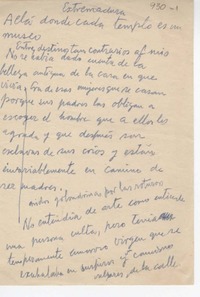 Extremadura
930-1
Allá donde cada templo es un
museo
Entre destinos tan contrarios al mío
No se había dado cuenta de la
belleza antigua de la casa en que
vivía Era de esas mujeres que se casan
porque sus padres las obligan a
escoger el hombre que a ellos les
agrada y que después son
esclavas de sus críos y están
invariablemente en camino de
ser madres.
golondrinas por las
No entendía de arte como entiende
una persona culta, pero tenía
temperamento amoroso virgen que se
exhalaba en suspiros y canciones
vulgares, de la calle